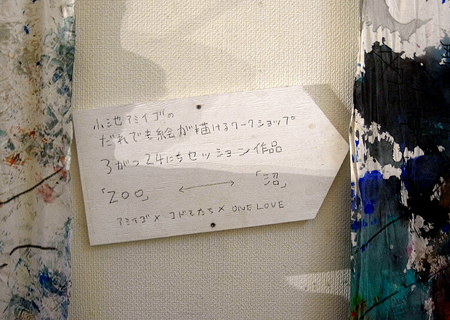 小池アミイゴの
だれでも絵が描けるワークショップ
3がつ24にちセッション作品
「ZOO」 ←→ 「沼」
アミイゴ×コドモたち×ONE LOVE